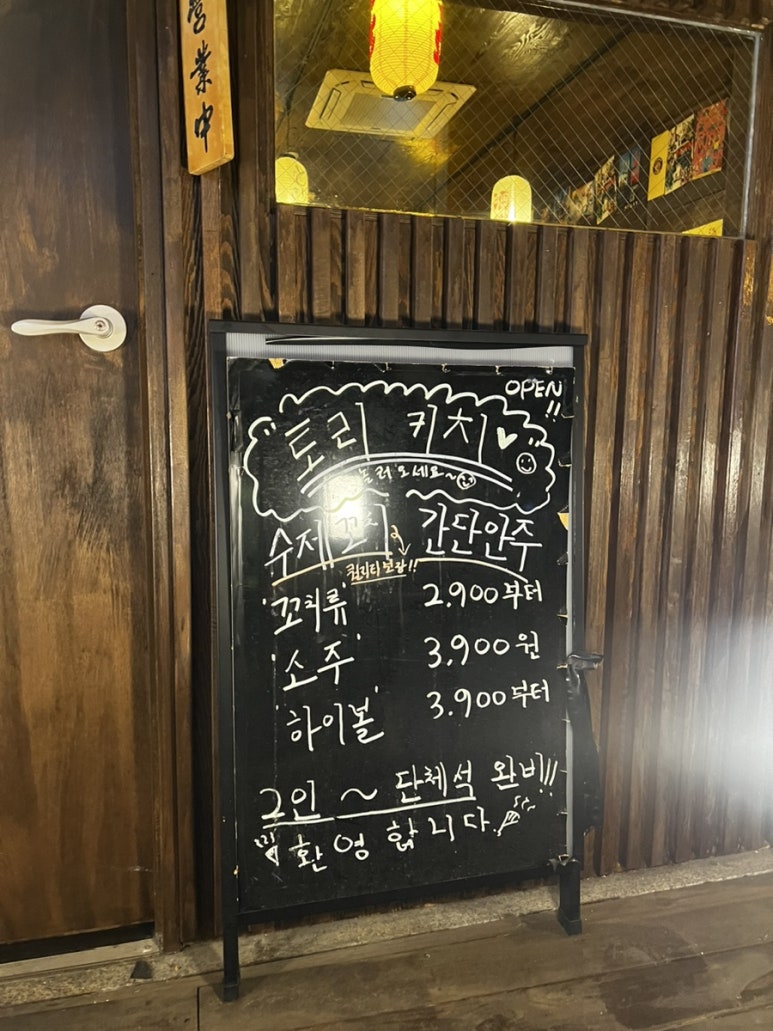 営業中
OPEN!!
토리 키치
놀러오세요~
수제꼬치 간단안주
퀄리티 보장!!
'꼬치류' 2.900부터
'소주' 3.900원
'하이볼' 3.900부터
2인 ~ 단체석 완비!!
환영합니다.